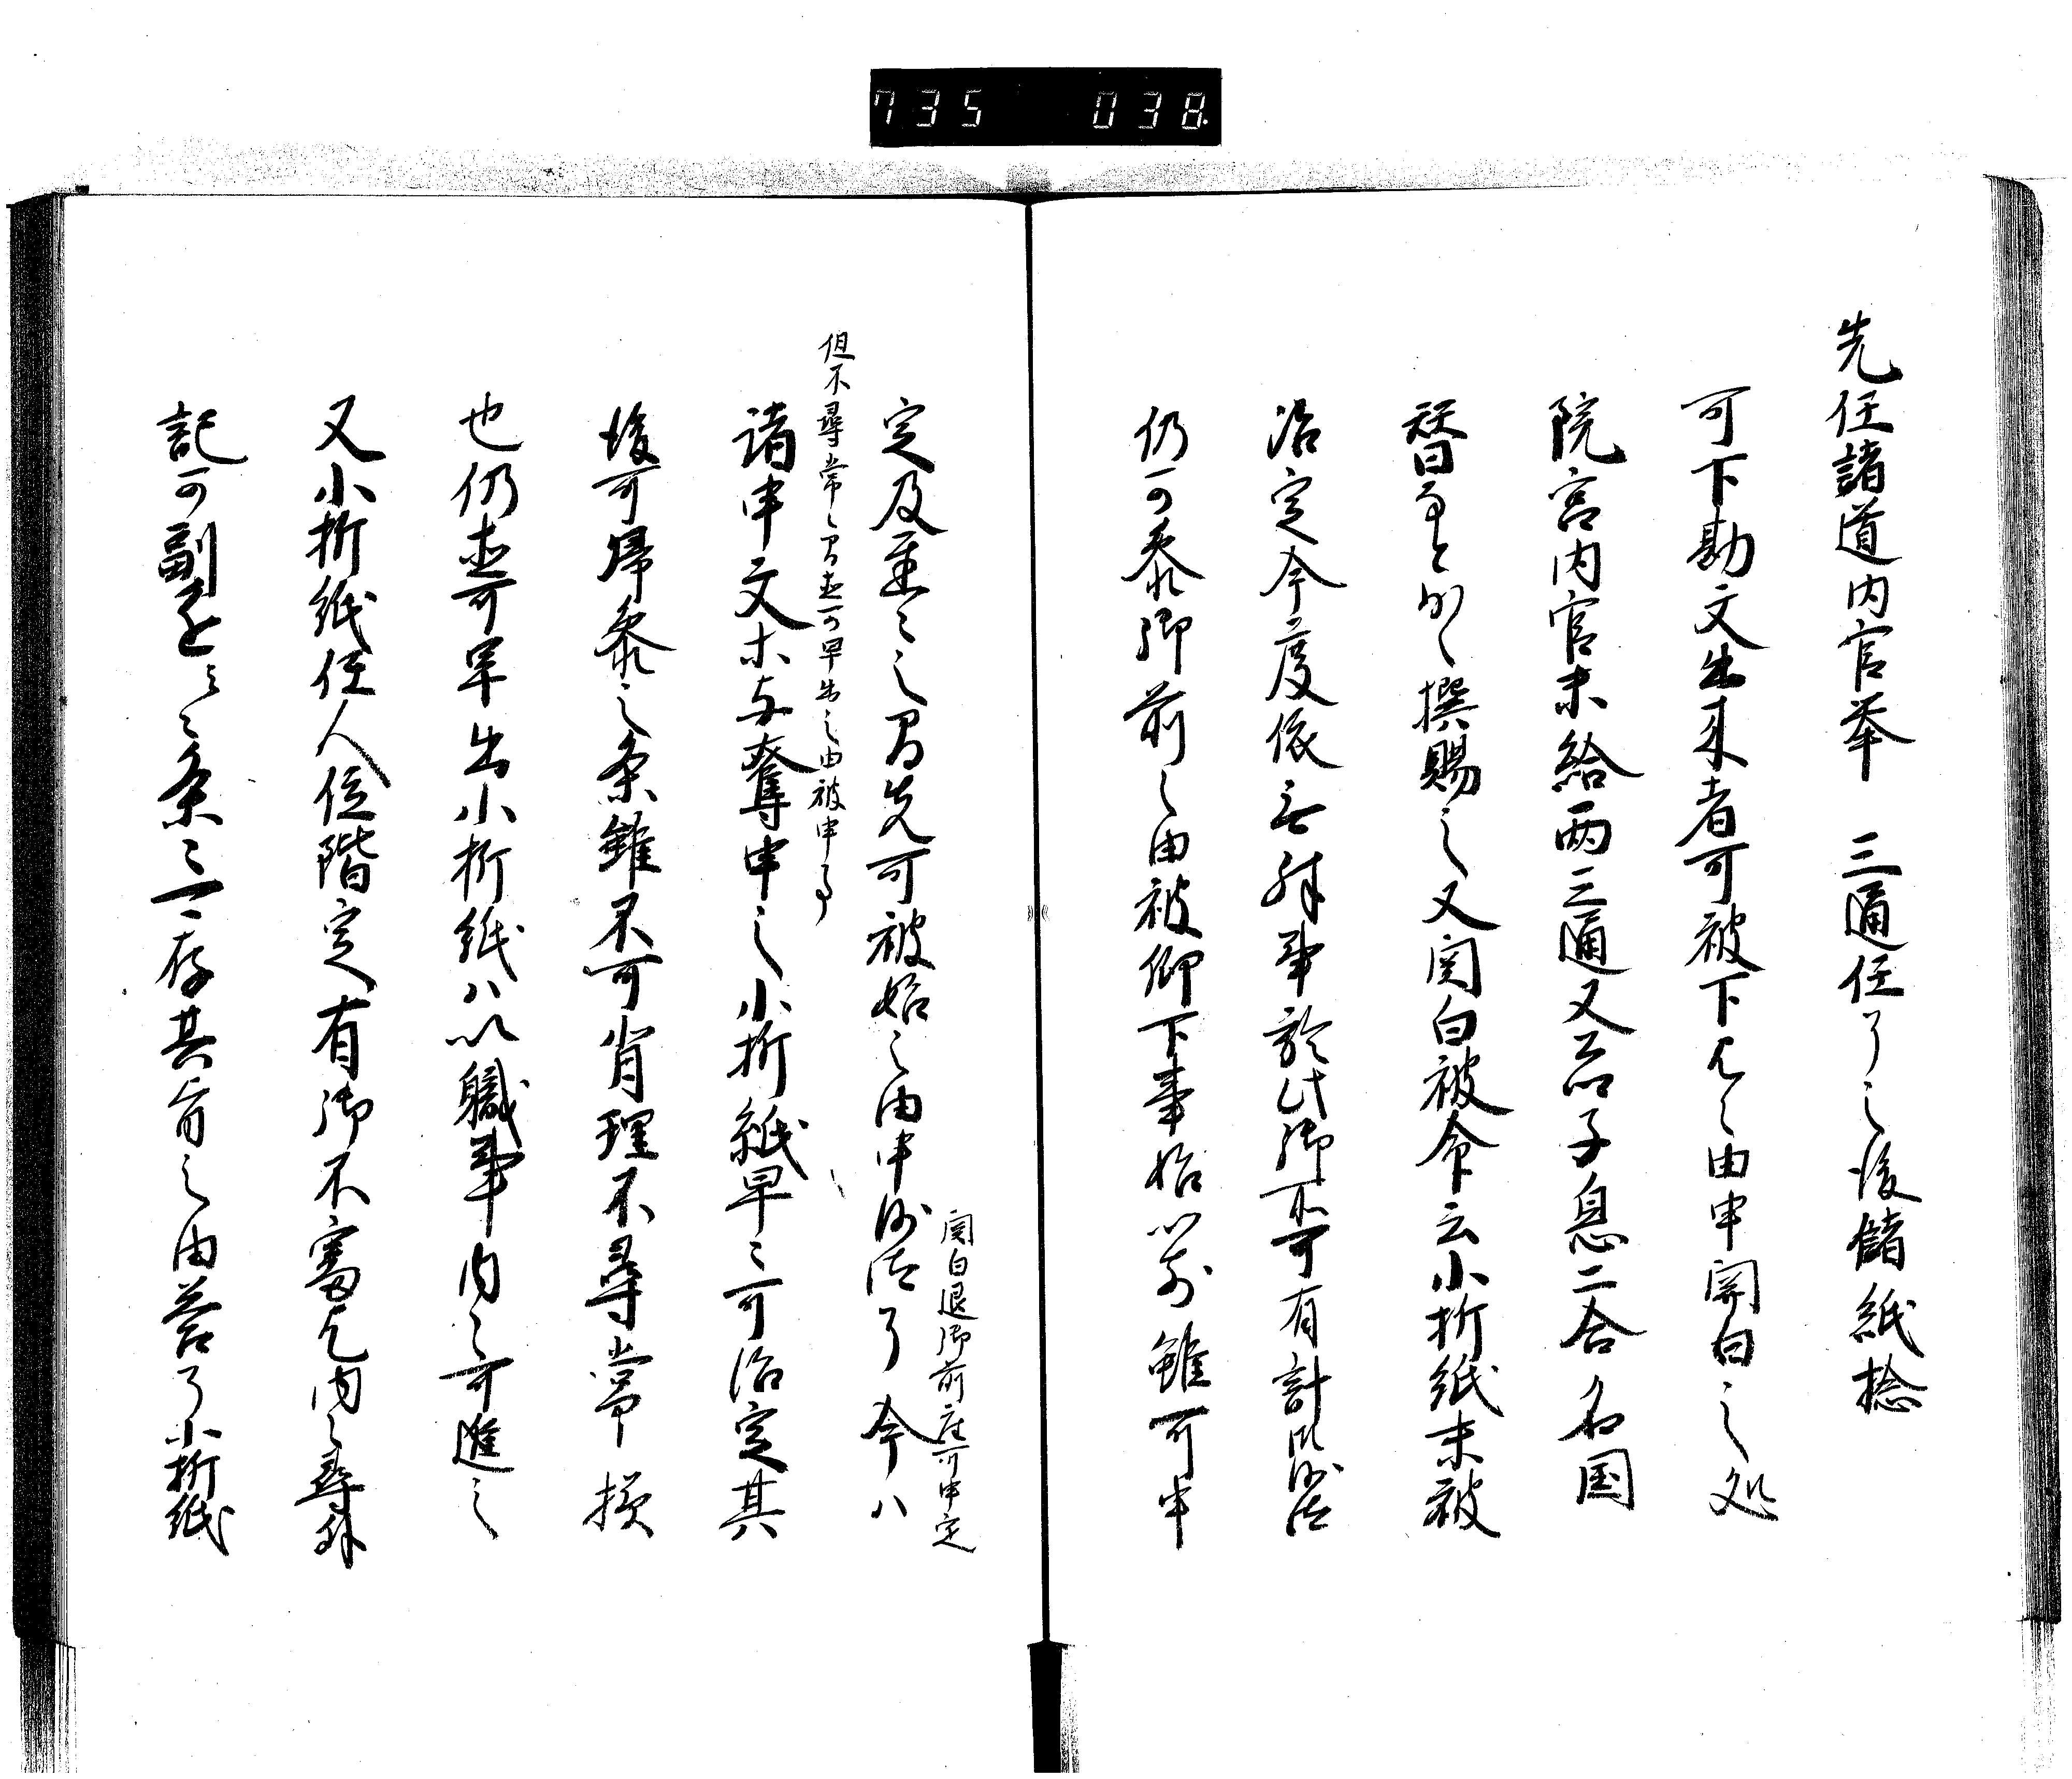 735 038
先任諸道内官挙 三通任了之後儲紙捻
可下勘文出来者可被下之由申関白之処
院宮内官未給両三通又公卿子息二合名国
替等撰賜之又関白被命云小折紙未被
治定今度依無殊事於此御所可有計御沙汰
仍可参御前之由被仰下事始以前雖可申
定及遅々之間先可被始之由申沙汰了今ハ
関白退御前座可申定
但不尋常之間直可早出之由被申了
諸申文等与奪申之小折紙早々可治定其
後可帰参之条雖不可背理不尋常損
也仍直可早出小折紙ハ以職事内々可進之
又小折紙任人位階定有御不審歟内々尋外
記可副進之条々一存其旨之由答了小折紙